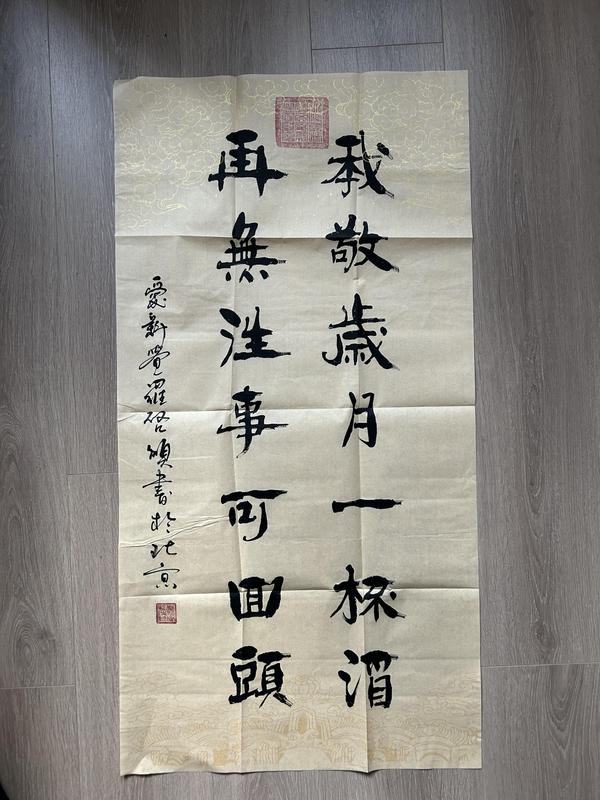 我敬歲月一杯酒
再無往事可回頭
愛新覺羅啓頌書於北京